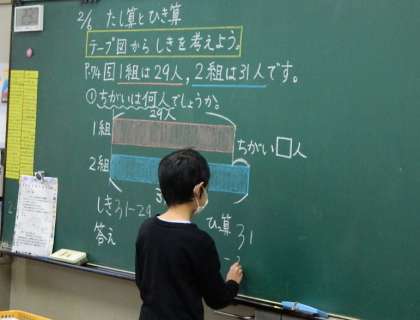 2/6 たし算とひき算
テープ図からしきを考えよう。
P.94 図 1組は29人, 2組は31人です。
① ちがいは何人でしょうか。
29人
1組
ちがい□人
2組
しき31-29
ひっ算
31
答え
-